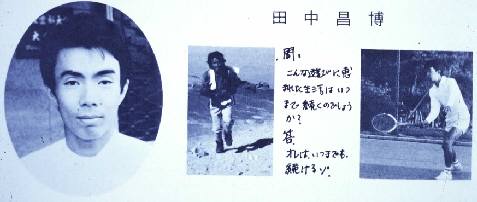 田中昌博
問:
こんな遊びに恵
まれた生活はいつ
まで続くのでしょう
か?
答
オレは、いつまでも
続けるゾ。